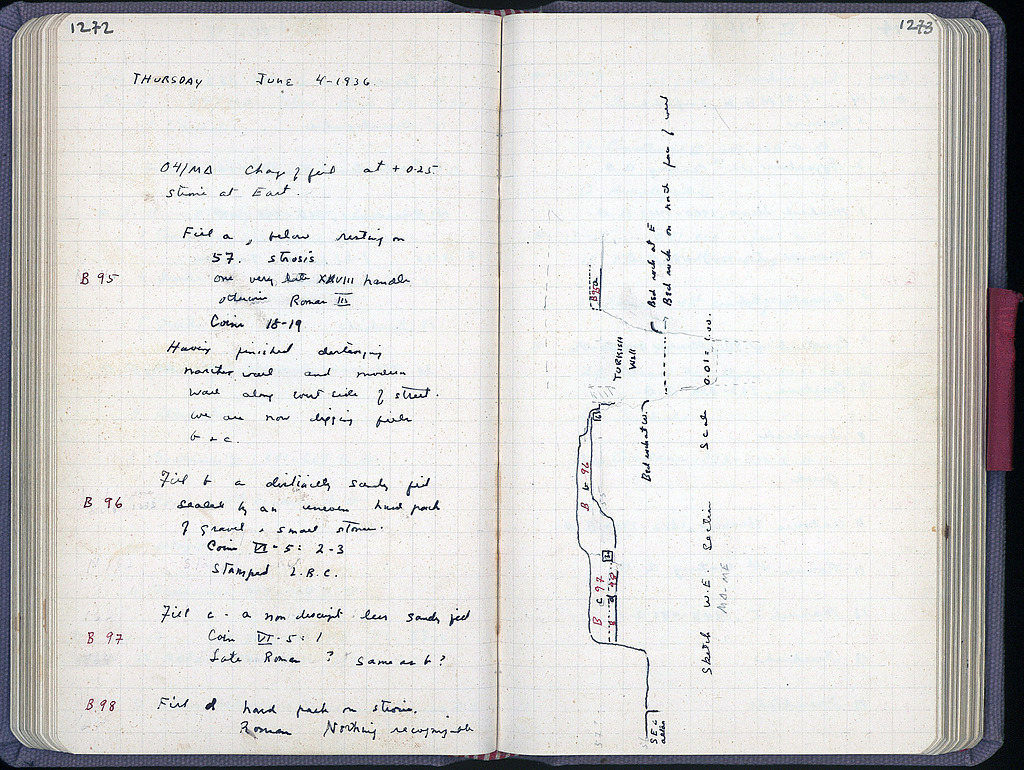 1272
THURSDAY JUNE 4-1936
04/MΔ Change of fill at +0.25
strosis at East.
Fill a, below resting on
57. strosis
B 95
one very late XXVIII handle
otherwise Roman III
Coins 18-19
Having finished
marches wall and modern
wall along west side of street.
we are now digging fills
b + c.
Fill b a distinctly sandy fill
B 96
sealed by an uneven hard pack
of gravel + small stones.
Coins VI-5: 2-3
Stamped L.B.C.
Fill c - a non descript less sandy fill
B 97
Coin VI-5: 1
Late Roman ? same as b?
B 98
Fill d hard pack on strosis.
Roman Nothing recognizable
1273
B 95 a
TURKISH
Wall
Bed rock at E
Bed rock on north face of west
Bed rock at W.
B b 96
B c 97
d 98
Sketch W.E. Section Scale 0.01 = 1.00.
MΔ-ME
SEC